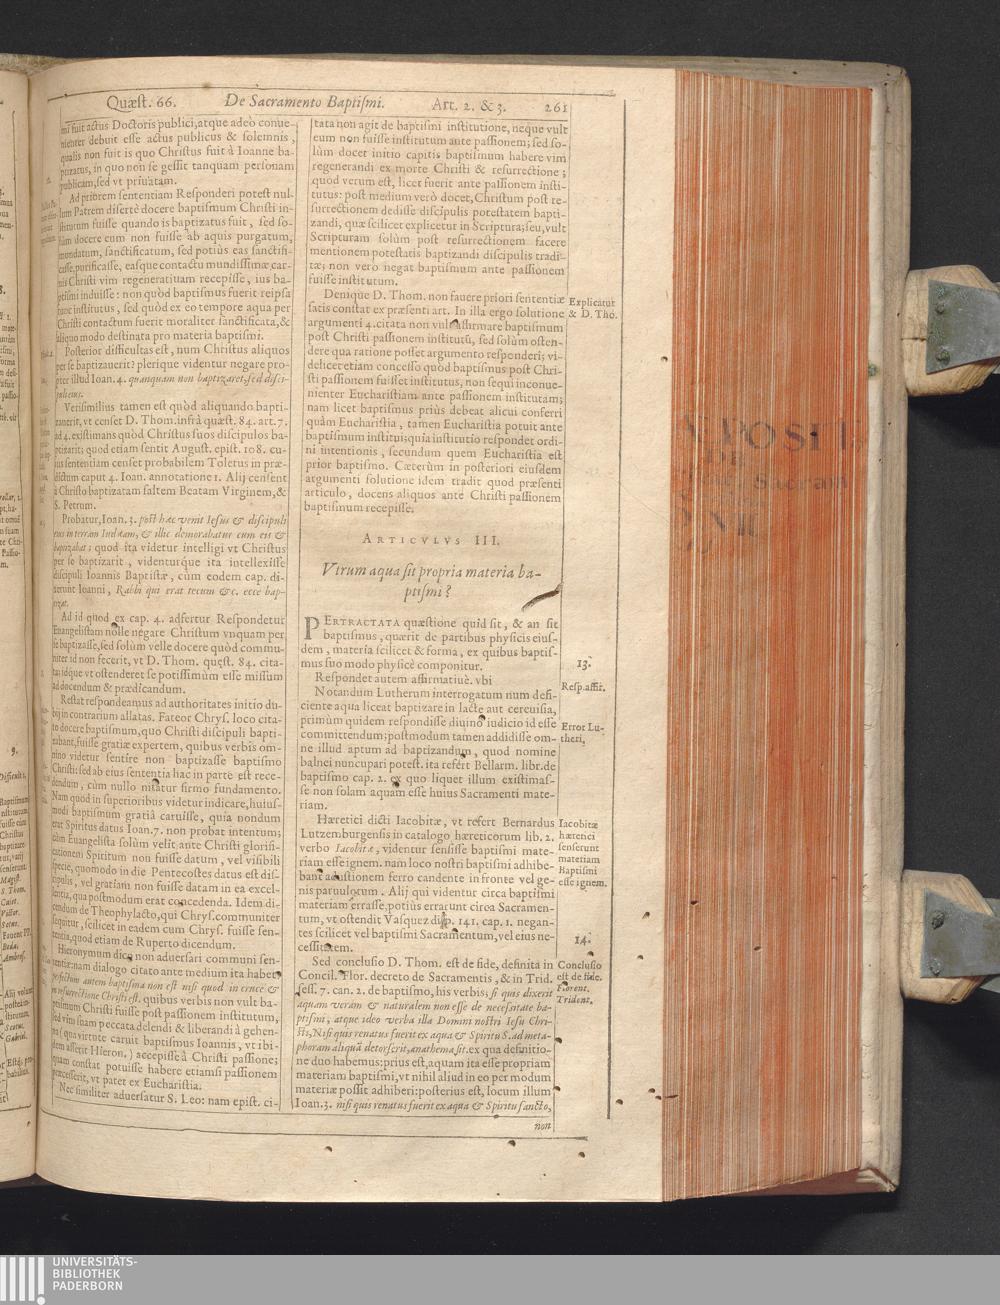 Quæst. 66. De Sacramento Baptiſmi. Art. 2. & 3. 261
mi fuit actus Doctoris publici, atque adeò conue-
nienter debuit eſſe actus publicus & ſolemnis,
qualis non fuit is quo Chriſtus fuit à Ioanne ba-
ptizatus, in quo non ſe geſſit tanquam perſonam
publicam, ſed vt priuatam.
Ad priorem ſententiam Reſponderi poteſt nul-
lum Patrem diſertè docere baptiſmum Chriſti in-
ſtitutum fuiſſe quando is baptizatus fuit, ſed ſo-
lùm docere eum non fuiſſe ab aquis purgatum,
mundatum, ſanctificatum, ſed potiùs eas ſanctifi-
caſſe, purificaſſe, eaſque contactu mundiſſimæ car-
nis Chriſti vim regeneratiuam recepiſſe, ius ba-
ptiſmi induiſſe: non quòd baptiſmus fuerit reipſa
tunc inſtitutus, ſed quòd ex eo tempore aqua per
Chriſti contactum fuerit moraliter ſanctificata, &
aliquo modo deſtinata pro materia baptiſmi.
Poſterior difficultas eſt, num Chriſtus aliquos
per ſe baptizauerit? plerique videntur negare pro-
pter illud Ioan. 4. quanquam non baptizaret, ſed diſci-
puli eius.
Veriſimilius tamen eſt quòd aliquando bapti-
zauerit, vt cenſet D. Thom. infrà quæſt. 84. art. 7.
ad 4. exiſtimans quòd Chriſtus ſuos diſcipulos ba-
ptizarit; quod etiam ſentit Auguſt. epiſt. 108. cu-
ius ſententiam cenſet probabilem Toletus in præ-
dictum caput 4. Ioan. annotatione 1. Alij cenſent
à Chriſto baptizatam ſaltem Beatam Virginem, &
S. Petrum.
Probatur, Ioan. 3. poſt hæc venit Ieſus & diſcipuli
eius in terram Iudæam, & illic demorabatur cum eis &
baptizabat: quod ita videtur intelligi vt Chriſtus
per ſe baptizarit, videnturque ita intellexiſſe
diſcipuli Ioannis Baptiſtæ, cùm eodem cap. di-
xerunt Ioanni, Rabbi qui erat tecum &c. ecce bap-
tizat.
Ad id quod ex cap. 4. adfertur Reſpondetur
Euangeliſtam nolle negare Chriſtum vnquam per
ſe baptizaſſe, ſed ſolùm velle docere quòd commu-
niter id non fecerit, vt D. Thom. quęſt. 84. cita-
ta; idque vt oſtenderet ſe potiſſimùm eſſe miſſum
ad docendum & prædicandum.
Reſtat reſpondeamus ad authoritates initio du-
bij in contrarium allatas. Fateor Chryſ. loco cita-
to docere baptiſmum, quo Chriſti diſcipuli bapti-
zabant, fuiſſe gratiæ expertem, quibus verbis om-
nino videtur ſentire non baptizaſſe baptiſmo
Chriſti: ſed ab eius ſententia hac in parte eſt rece-
dendum, cùm nullo nitatur firmo fundamento.
Nam quod in ſuperioribus videtur indicare, huiuſ-
modi baptiſmum gratiâ caruiſſe, quia nondum
erat Spiritus datus Ioan. 7. non probat intentum;
cùm Euangeliſta ſolùm velit ante Chriſti glorifi-
cationem Spiritum non fuiſſe datum, vel viſibili
ſpecie, quomodo in die Pentecoſtes datus eſt diſ-
cipulis, vel gratiam non fuiſſe datam in ea excel-
lentia, qua poſtmodum erat concedenda. Idem di-
cendum de Theophylacto, qui Chryſ. communiter
ſequitur, ſcilicet in eadem cum Chryſ. fuiſſe ſen-
tentia, quod etiam de Ruperto dicendum.
Hieronymum dico non aduerſari communi ſen-
tentiæ: nam dialogo citato ante medium ita habet
perfectum autem baptiſma non eſt niſi quod in cruce &
in reſurrectione Chriſti eſt. quibus verbis non vult ba-
ptiſmum Chriſti fuiſſe poſt paſſionem inſtitutum,
ſed vim ſuam peccata delendi & liberandi à gehen-
na (qua virtute caruit baptiſmus Ioannis, vt ibi-
dem aſſerit Hieron.) accepiſſe à Chriſti paſſione;
quam conſtat potuiſſe habere etiamſi paſſionem
præceſſerit, vt patet ex Euchariſtia.
Nec ſimiliter aduerſatur S. Leo: nam epiſt. ci-
tata non agit de baptiſmi inſtitutione, neque vult
eum non fuiſſe inſtitutum ante paſſionem; ſed ſo-
lùm docet initio capitis baptiſmum habere vim
regenerandi ex morte Chriſti & reſurrectione;
quod verum eſt, licet fuerit ante paſſionem inſti-
tutus: poſt medium verò docet, Chriſtum poſt re-
ſurrectionem dediſſe diſcipulis poteſtatem bapti-
zandi, quæ ſcilicet explicetur in Scriptura; ſeu, vult
Scripturam ſolùm poſt reſurrectionem facere
mentionem poteſtatis baptizandi diſcipulis tradi-
tæ; non verò negat baptiſmum ante paſſionem
fuiſſe inſtitutum.
Denique D. Thom. non fauere priori ſententiæ
ſatis conſtat ex præſenti art. In illa ergo ſolutione
argumenti 4. citata non vult affirmare baptiſmum
poſt Chriſti paſſionem inſtitutũ, ſed ſolùm oſten-
dere qua ratione poſſet argumento reſponderi; vi-
delicet etiam conceſſo quòd baptiſmus poſt Chri-
ſti paſſionem fuiſſet inſtitutus, non ſequi inconue-
nienter Euchariſtiam ante paſſionem inſtitutam;
nam licet baptiſmus priùs debeat alicui conferri
quàm Euchariſtia, tamen Euchariſtia potuit ante
baptiſmum inſtitui; quia inſtitutio reſpondet ordi-
ni intentionis, ſecundum quem Euchariſtia eſt
prior baptiſmo. Cæterùm in poſteriori eiuſdem
argumenti ſolutione idem tradit quod præſenti
articulo, docens aliquos ante Chriſti paſſionem
baptiſmum recepiſſe.
Explicatur
& D. Tho.
ARTICVLVS III.
Vtrum aqua ſit propria materia ba-
ptiſmi?
PERTRACTATA quæſtione quid ſit, & an ſit
baptiſmus, quærit de partibus phyſicis eiuſ-
dem, materia ſcilicet & forma, ex quibus baptiſ-
mus ſuo modo phyſicè componitur.
Reſpondet autem affirmatiuè. vbi
Notandum Lutherum interrogatum num defi-
ciente aqua liceat baptizare in lacte aut cereuiſia,
primùm quidem reſpondiſſe diuino iudicio id eſſe
committendum; poſtmodum tamen addidiſſe om-
ne illud aptum ad baptizandum, quod nomine
balnei nuncupari poteſt. ita refert Bellarm. libr. de
baptiſmo cap. 2. ex quo liquet illum exiſtimaſ-
ſe non ſolam aquam eſſe huius Sacramenti mate-
riam.
Hæretici dicti Iacobitæ, vt refert Bernardus
Lutzemburgenſis in catalogo hæreticorum lib. 2.
verbo Iacobitæ, videntur ſenſiſſe baptiſmi mate-
riam eſſe ignem. nam loco noſtri baptiſmi adhibe-
bant aduſtionem ferro candente in fronte vel ge-
nis paruulorum. Alij qui videntur circa baptiſmi
materiam erraſſe, potiùs errarunt circa Sacramen-
tum, vt oſtendit Vaſquez diſp. 141. cap. 1. negan-
tes ſcilicet vel baptiſmi Sacramentum, vel eius ne-
ceſſitatem.
Sed concluſio D. Thom. eſt de fide, definita in
Concil. Flor. decreto de Sacramentis, & in Trid.
ſeſſ. 7. can. 2. de baptiſmo, his verbis; ſi quis dixerit
aquam veram & naturalem non eſſe de neceſsitate ba-
ptiſmi, atque ideo verba illa Domini noſtri Ieſu Chri-
ſti, Niſi quis renatus fuerit ex aqua & Spiritu S. ad meta-
phoram aliquã detorſerit, anathema ſit. ex qua definitio-
ne duo habemus: prius eſt, aquam ita eſſe propriam
materiam baptiſmi, vt nihil aliud in eo per modum
materiæ poſſit adhiberi: poſterius eſt, locum illum
Ioan. 3. niſi quis renatus fuerit ex aqua & Spiritu ſancto,
non
13.
Reſp. affir.
Error Lu-
theri,
Iacobitæ
hæretici
ſenſerunt
materiam
Baptiſmi
eſſe ignem.
14.
Concluſio
eſt de fide.
Florent.
Trident.
9.
Difficult.
UNIVERSITÄTS-
BIBLIOTHEK
PADERBORN